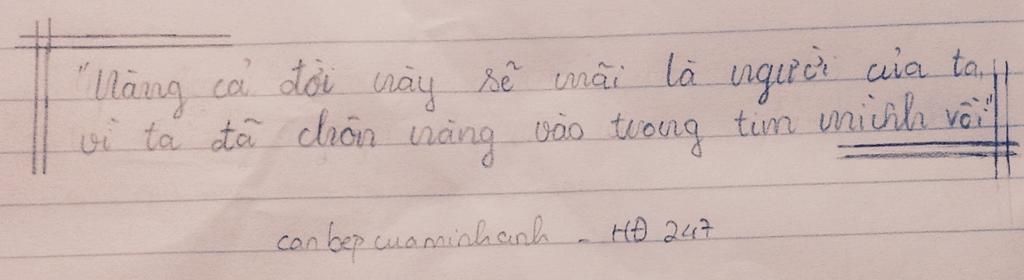 "Nàng cả đời này sẽ mãi là người của ta,
vì ta đã chôn nàng vào trong tim mình rồi"
canbepcuaminhanh - HĐ 247